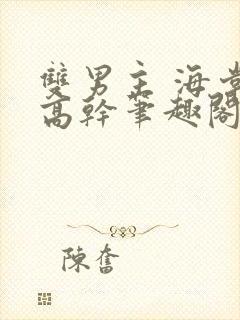 雙男主 海棠
高幹筆趣閣
陳奮